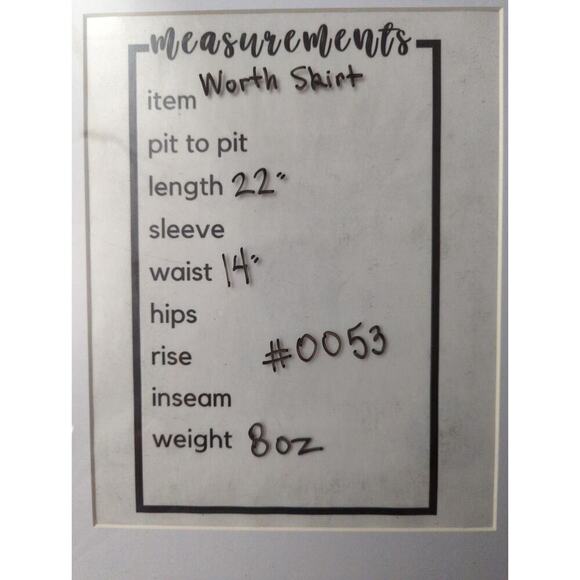 measurements
item Worth Skirt
pit to pit
length 22"
sleeve
waist 14"
hips
rise #0053
inseam
weight 8oz